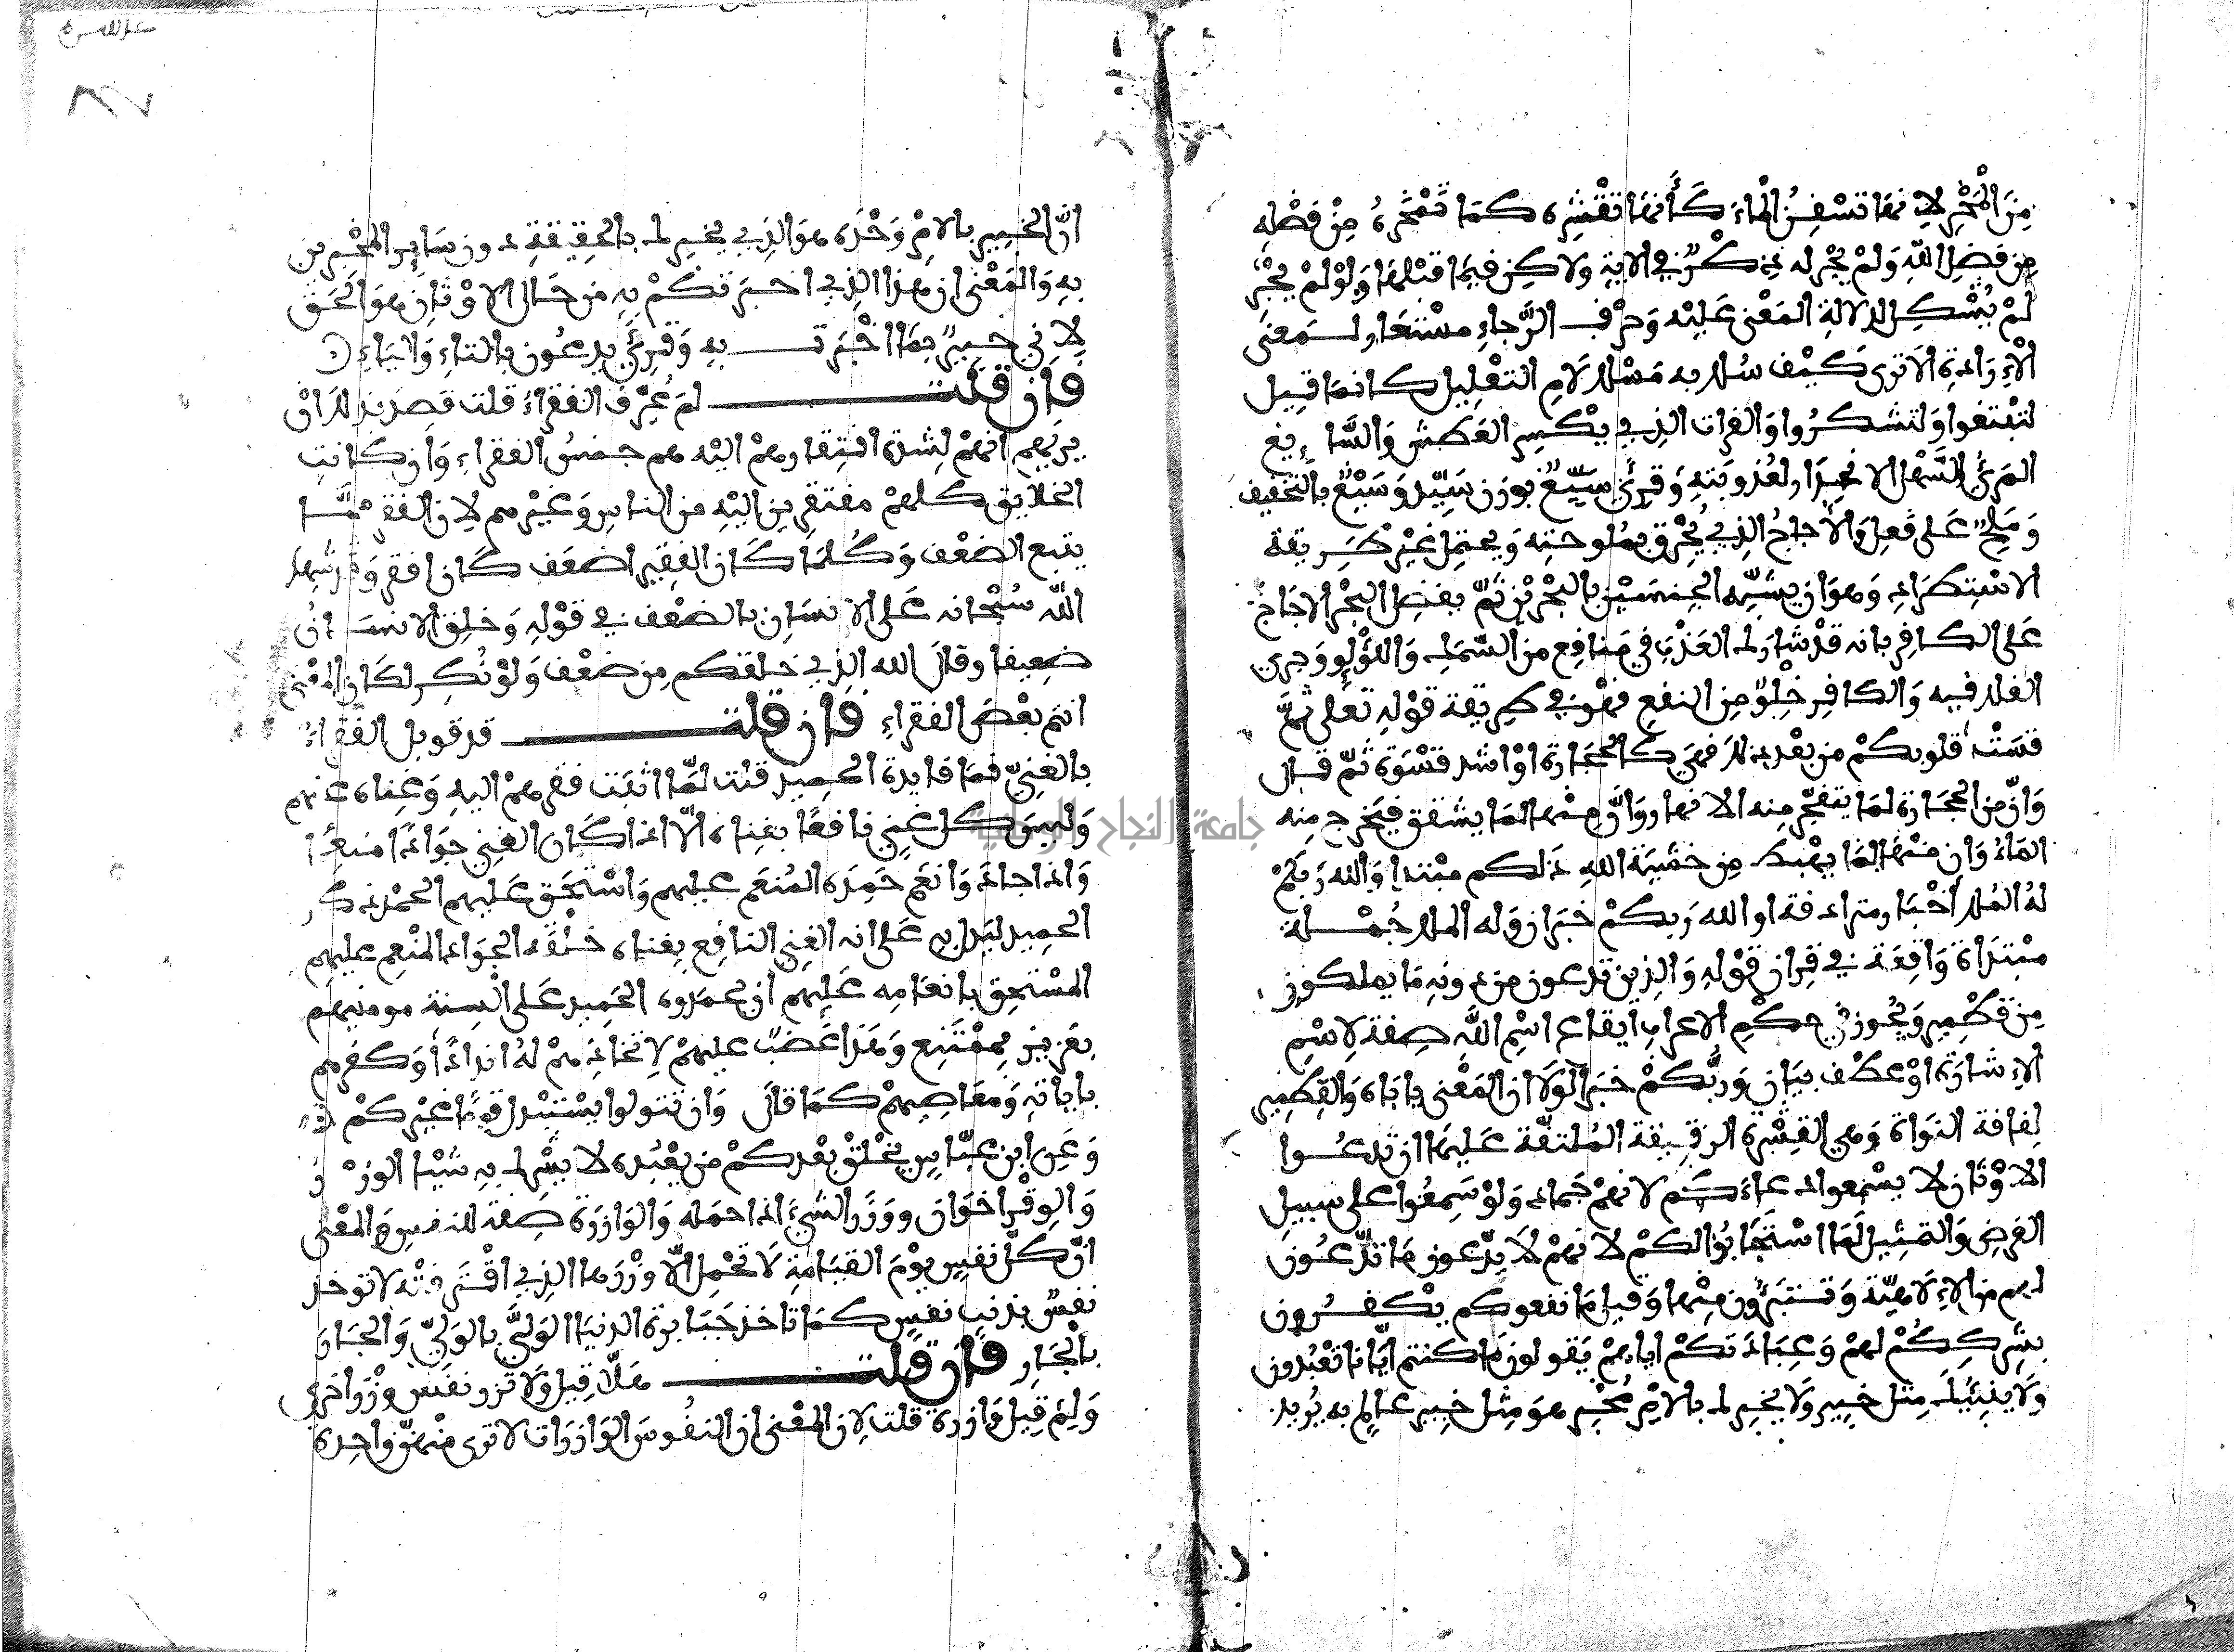 مِنَ الْمَخْرِ لِانها تسْفِنُ الْماءَ كَأَنها تقْشِره كمَا تَمْخَرُهُ مِنْ فَضْلِه
مِن فضلِ اللّه وَلَمْ يجْرِ له ذِكْرٌ في الاية ولاكِن فيمَا قبْلها وَلوْ لمْ يجْرِ
لمْ يُشْكِل لدلالةِ المَعْنى عَليْه وَحرْف الرَّجاءِ مسْتعَار لمَعنى
الْاِرَادة الاَ ترى كيْف سُلك به مَسْلك لَامِ التعْلِيل كانمَا قِيل
لتبْتغوا وَلتشكرُوا وَالفرات الذِي يكْسِر العَطش وَالسَّايِغ
المَرِئُ السَّهل الانحِدَار لعُذوبَتِهِ وَقرِئَ سَيِّغٌ بوزن سَيِّد وَسَيْغٌ بالتخفيف
وَمَلِحٌ عَلى فَعِل وَالأجاجُ الذِي يُحْرِق بمُلوحَتِه وَيحتمل غيْر طَرِيقة
الاسْتِطرَادِ وَهوَ ان يشَبِّه الجِنسَيْن بالبَحْرَيْن ثمَّ يفضل البَحْر الاجَاجُ
عَلى الكافِر بانه قدْ شارَك العَذْبَ في مَنافِع من السَّمَك وَاللؤْلؤ وَجري
الفلك فيه وَالكافِر خِلوٌ مِن النفعِ فهْوَ في طرِيقة قوْلهِ تعَلى ثمَّ
قسَتْ قلوبكمْ من بعْد ذلك فهيَ كالحجَارة اوْ اشد قسْوَة ثمَّ قال
وَانّ من الحجَارة لمَا يتفجّر مِنه الانهار وَانَّ مِنْها لمَا يشقق فيَخرج مِنه
المَاءُ وَان مِنْها لمَا يهْبط مِن خشْيَة اللهِ ذلكم مبْتدا وَالله رَبكمْ
لهُ المُلك أخْبَار مترادفة او الله رَبكمْ خبَران وَله الملك جُمْلة
مبْتدَاة وَاقعَة في قِران قوْلهِ وَالذِين تدعون من دونِهِ مَا يملكون
مِن قطْمِير وَيجُوز في حكْمِ الاعرابِ ايقاع اسْمِ اللّهِ صِفة لِاسْمِ
الاِشارَة اوْ عَطْف بيَان وَرَبُّكمْ خبَرا لوْلَا ان المَعْنى يابَاه وَالقِطمِير
لِفافة النوَاة وَهي القِشْرة الرقِيقة المُلتفَّة عَليهَا ان تدعُوا
الاوْثان لا يسْمعوا دعاءَكم لانهمْ جَماد وَلوْ سَمِعُوا على سبيلِ
الفرضِ وَالتمثِيل لَمَا اسْتجَابُوا لكمْ لانهمْ لَا يدَّعون مَا تدَّعُون
لهم من الاِلَاهِيَّة وَتتبَرَّؤُن مِنْها وَقيل مَا نفعوكم يكْفرُون
بشِركِكُمْ لهمْ وَعِبَادَتكمْ اياهمْ يَقولون مَا كنتم ايّانا تعْبُدون
وَلَا ينبِّئكَ مِثل خبِير وَلَا يخبِرك بالامْرِ مُخْبِر هوَ مِثل خبِير عالِم به يُريد
انّ الخبِير بالامْرِ وَحْدَه هوَ الذِي يخبِرك بالحَقِيقةِ دون سَايِر المخْبِرِين
بِهِ وَالمَعْنى ان هذا الذِي اخبَرتكمْ بِهِ مِن حَال الاوْثانِ هوَ الحَق
لِانِي خبِيرٌ بمَا اخْبَرت بِهِ وَقرِئَ يدعُون بالتاءِ وَاليَاءِ
فان قلت لمَ عُرِّف الفقراءُ قلت قصِد بذلك انْ
يريَهم انهمْ لِشدة افتِقارهمْ اليْه هم جنسُ الفقراءِ وَان كانت
الخلايق كلهمْ مفتقرِين اليْهِ من الناسِ وَغيْرهم لِان الفقر ممَّا
يتبع الضعْف وَكُلمَا كان الفقِير اضعَف كان افقر وَقد شهد
اللّه سُبْحانه عَلى الانسَانِ بالضعْف في قوْلهِ وَخلِق الانسَانُ
ضعِيفا وقالَ الله الذِي خلقكم مِن ضعْف وَلوْ نُكِّر لكَان المعْنى
انتم بعْضُ الفقراءِ فان قلت قد قوبل الفقراءُ
بالغنِيّ فمَا فايدة الحميد قلت لمَّا اثبَت فقرهمْ اليهِ وَغِناه عنهم
وَليسَ كل غنِي نافعًا بغناه الّا اذا كان الغنِي جوَادًا منعِمًا
وَاذا جادَ وَانعَم حَمِدَه المُنعَم عليهم وَاسْتحَق عَليهم الحمْد ذكر
الحميد ليَدل بِهِ عَلى انه الغنِي النافِع بِغناه خلْقه الجوَاد المنْعِم عليهم
المسْتحِق بانعَامِه عَليهم ان يحمَدوه الحَمِيد عَلى السِنة مومنِيهم
بعَزِيز بممْتَنِع وَهذا غَضبٌ عليهمْ لِاتخاذِهمْ لهُ اندادًا وَكفرهم
باياتِهِ وَمعَاصِيهمْ كمَا قالَ وَان تتولوا يسْتبْدل قومًا غيْركمْ
وَعَن ابن عبَّاسِ يخْلقْ بعْدكمْ من يعْبُده لا يشْرك بِهِ شيْئا الوزْر
وَالوِقْر اخوَان ووَزَر الشيءَ اذا حمَله وَالوَازرَة صِفة للنفس وَالمعْنى
انّ كلّ نفسٍ يوْمَ القيَامَةِ لَا تحْمِل الّا وزْرَها الذِي اقْترفتْه لا توخذ
نفسٌ بذنبِ نفسٍ كمَا تاخذ جَبَابرة الدنيَا الوَليَّ بالوَلِيّ وَالجَارَ
بالجَار فان قلت هَلّا قِيل وَلا تزر نفس وِزْر اخرى
وَلِمَ قِيل وَازرة قلت لِان المعْنى ان النفُوسَ الوَازرَات لا ترى منْهنّ وَاحِدة
جامعة النجاح الوطنية